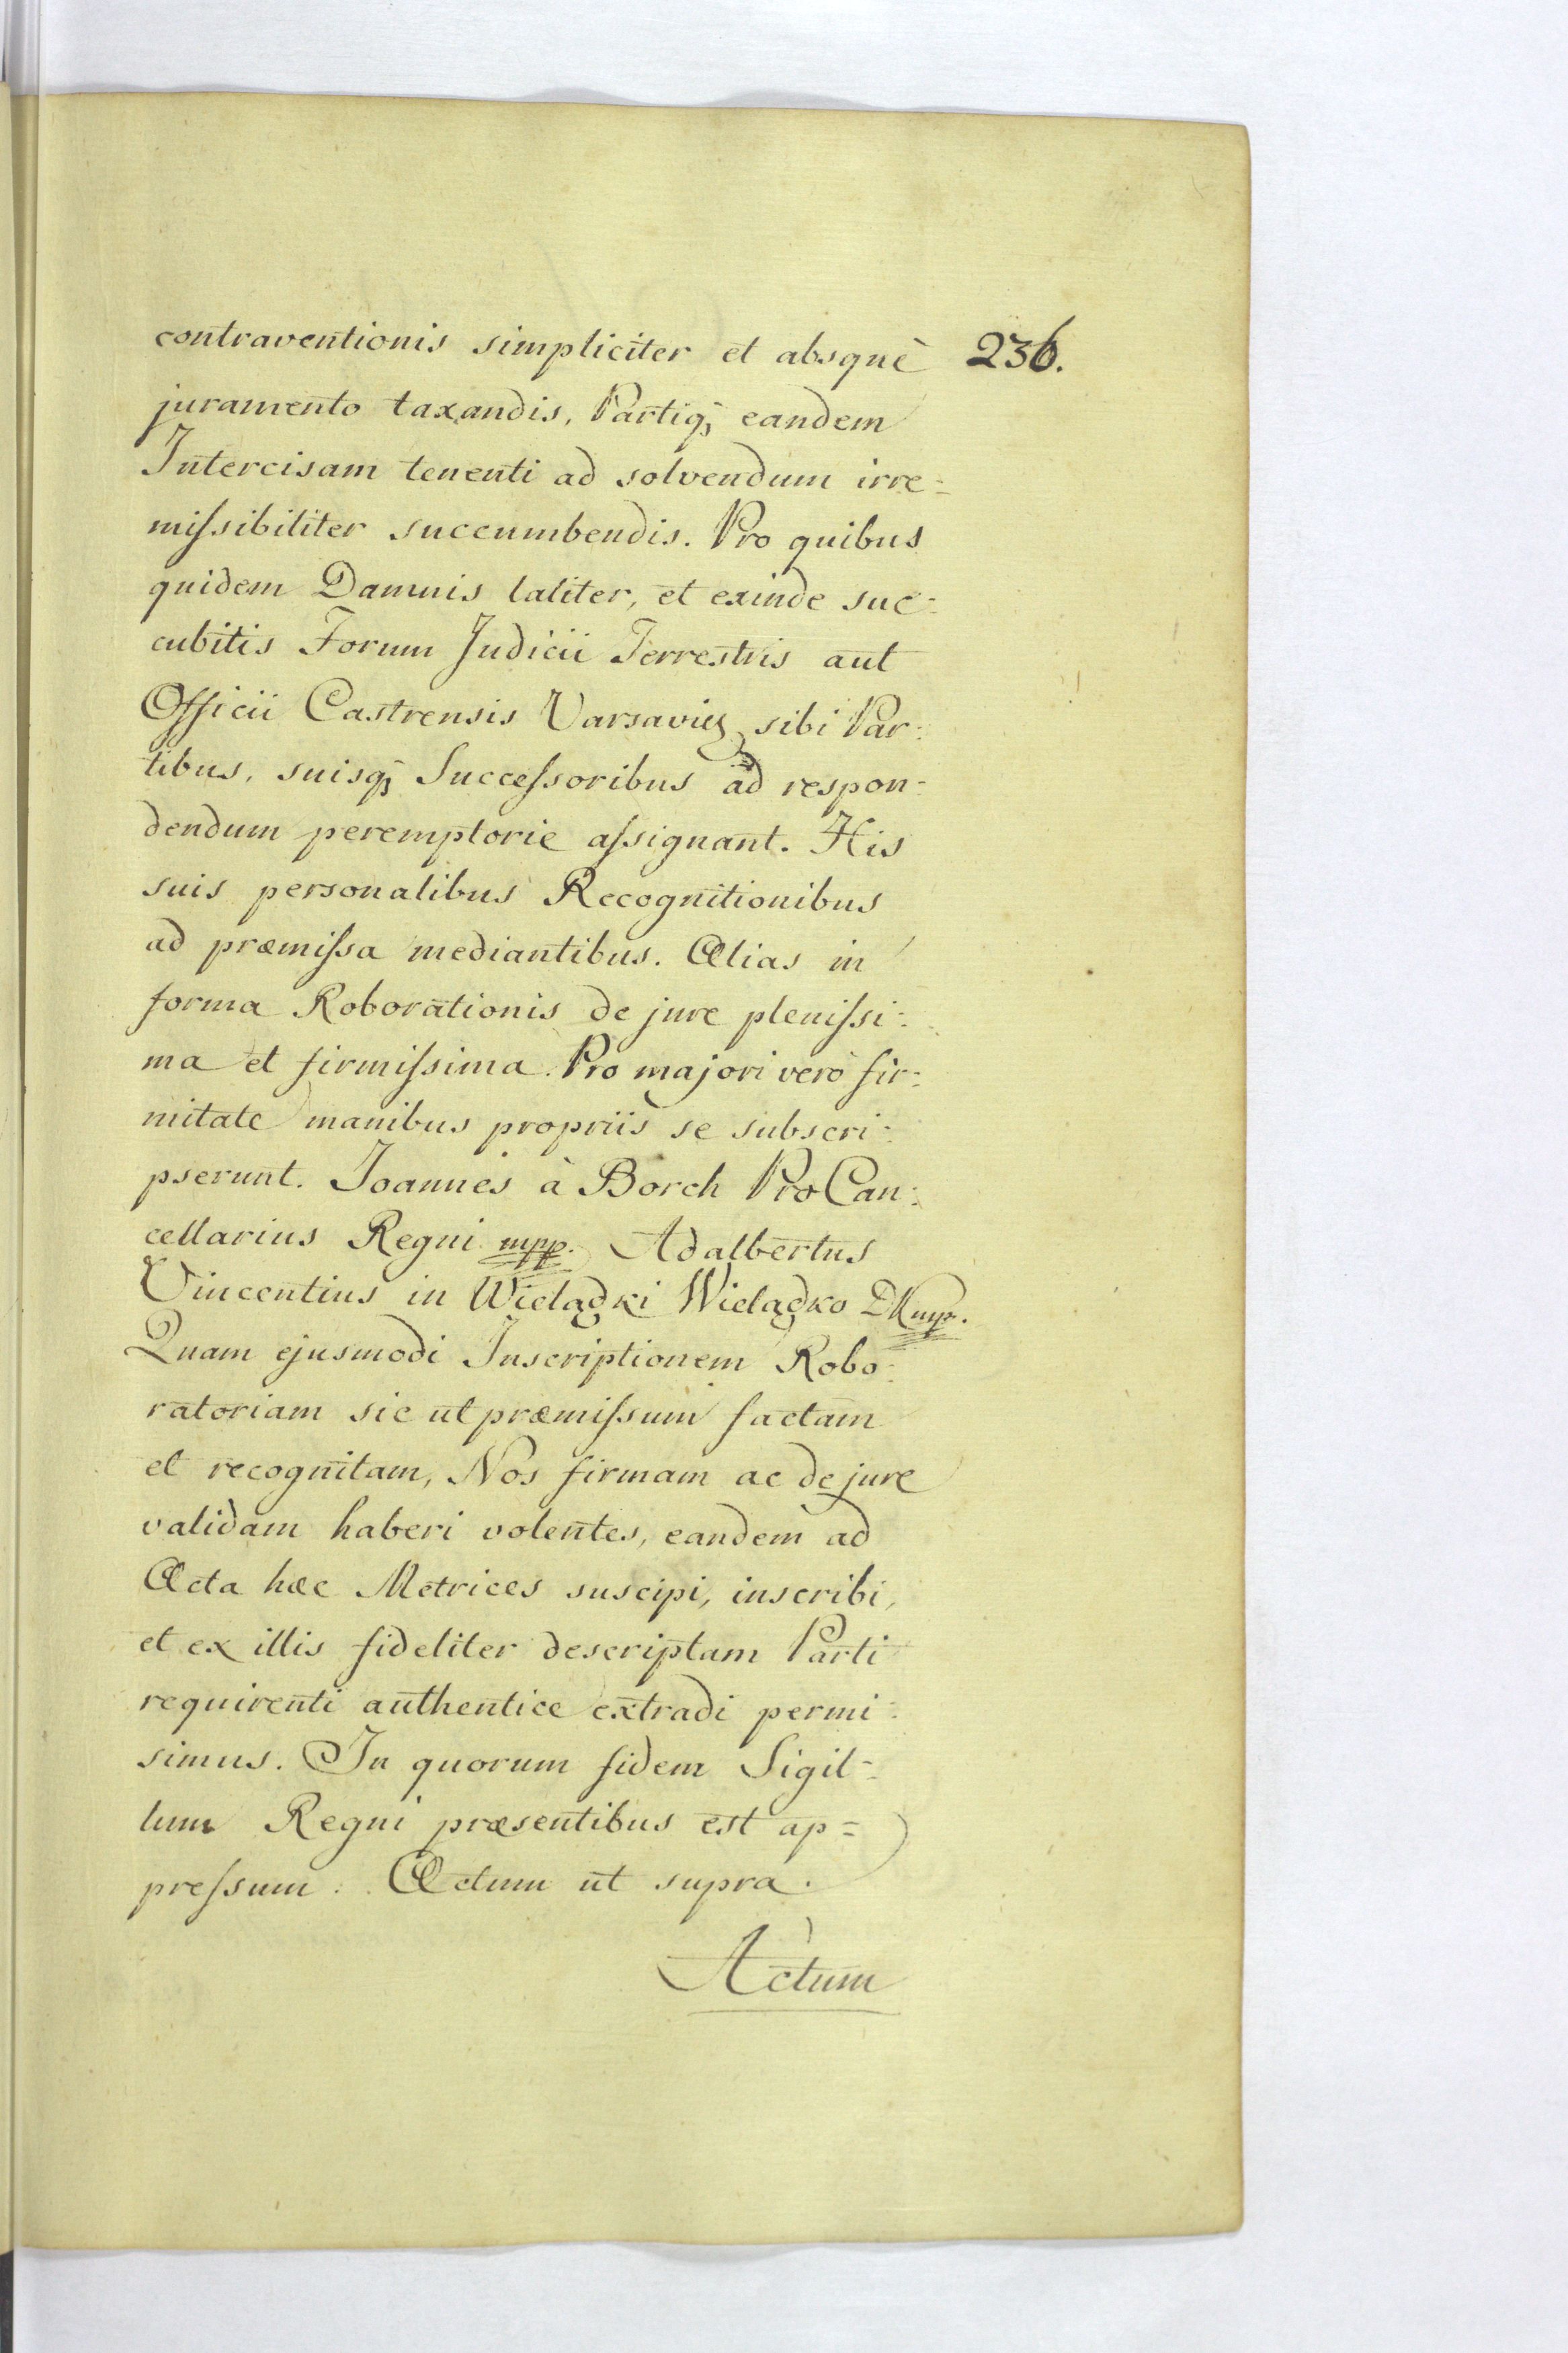 contraventionis simpliciter et absquè 236.
juramento taxandis, Partiq; eandem
Intercisam tenenti ad solvendum irre=
miſsibiliter succumbendis. Pro quibus
quidem Damnis taliter, et exinde suc=
cubitis Forum Judicii Terrestris aut
Officii Castrensis Varsavię sibi Par=
tibus, suisq; Succeſsoribus ad respon=
dendum peremptorie aſsignant. His
suis personalibus Recognitionibus
ad præmiſsa mediantibus. Alias in
forma Roborationis de jure pleniſsi=
ma et firmiſsima. Pro majori verò fir=
mitate manibus propriis se subscri=
pserunt. Joannes à Borch ProCan=
cellarius Regni mpp. Adalbertus
Vincentius in Wielądki Wielądko DK mp.
Quam ejusmodi Inscriptionem Robo=
ratoriam sic ut præmiſsum factam
et recognitam, Nos firmam ac de jure
validam haberi volentes, eandem ad
Acta hæc Metrices suscipi, inscribi,
et ex illis fideliter descriptam Parti
requirenti authentice extradi permi=
simus. In quorum fidem Sigil=
lum Regni præsentibus est ap=
preſsum. Actum ut supra.
Actum